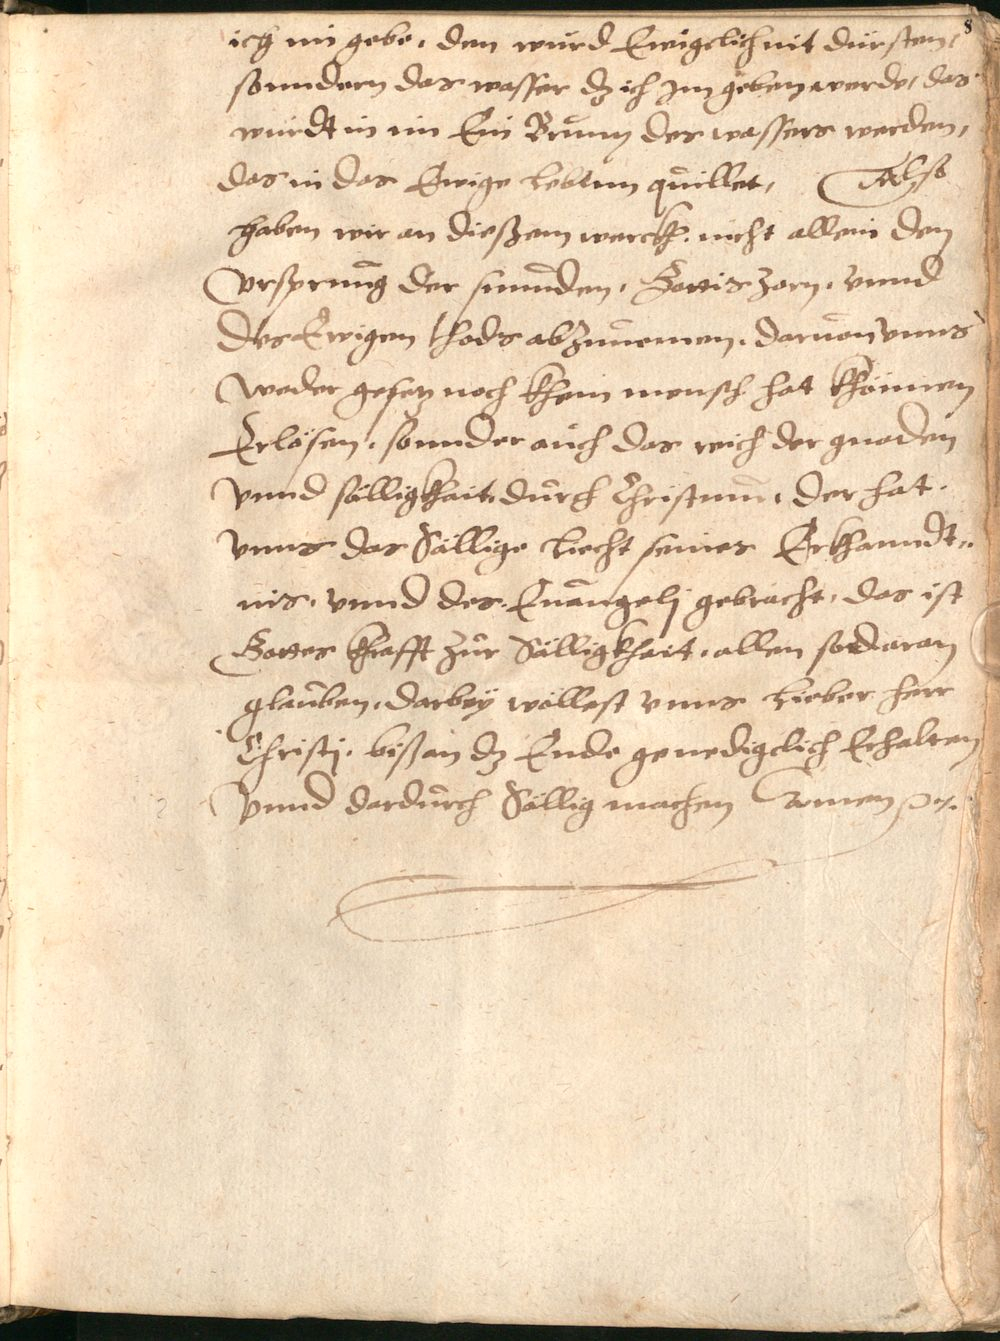 8
ich im gebe, den würd Ewigclich nit dürsten,
sonndern das wasser dz ich Jm geben werde, das
würdt in im Ein Brunn des wassers werden,
das in das Ewige Lebenn quillet, Also
haben wir an dießem werckh, nicht allein den
Vrsprung der sünnden, Gottis zorn, vnnd
des Ewigen thods abzunemen, daruon vnns
Weder gesetz noch khein mensch hat khönnen
Erlösen, sonnder auch das reich der gnaden
Vnnd sälligkhait durch Christum, der hat
Vnns das Sällige Liecht seiner Erkhanndt-
nis, vnnd des Euangelj gebracht, das ist
Gottes krafft zur Sälligkhait, allen so daran
glauben, darbey wöllest vnns Lieber herr
Christj, biß an dz Ende genedigclich Erhalten
Vnnd dardurch Sällig machen Amen